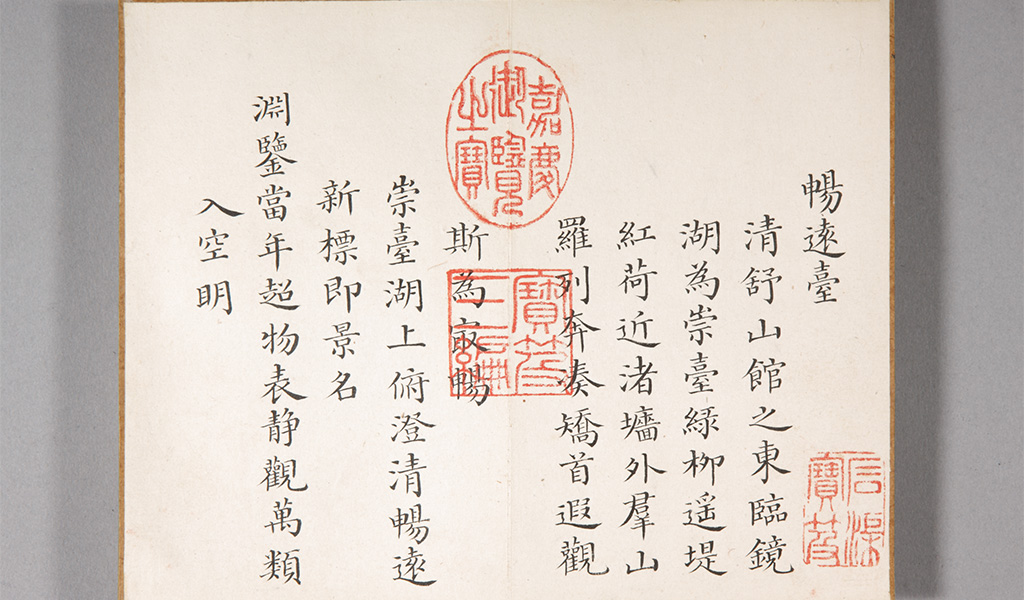 暢遠臺
清舒山館之東臨鏡
湖為崇臺綠柳遥堤
紅荷近渚墻外羣山
羅列奔湊矯首遐觀
斯為㝡暢
崇臺湖上俯澄清暢遠
新標即景名
淵鑒當年超物表静觀萬類
入空明
嘉慶御覽之寶
寶笈三編